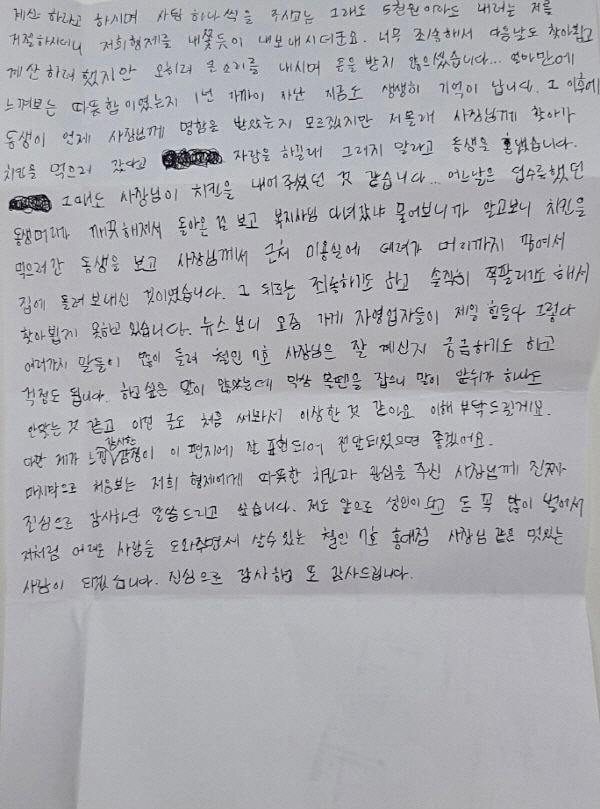 계산 하라고 하시며 사탕 하나씩을 주시고는 그래도 5천원이라도 내려는 저를
거절하시더니 저희형제를 내쫓듯이 내보내시더군요. 너무 죄송해서 다음날도 찾아뵙고
계산하려 했지만 오히려 큰 소리를 내시며 돈을 받지 않으셨습니다... 얼마만에
느껴보는 따뜻함이었는지 1년 가까이 지난 지금도 생생히 기억이 납니다. 그 이후에
동생이 언제 사장님께 명함을 받았는지 모르겠지만 저몰래 사장님께 찾아가
치킨을 먹으러 갔다고 자랑을 하길래 그러지 말라고 동생을 혼냈습니다.
그때도 사장님이 치킨을 내어주셨던 것 같습니다... 어느날은 덥수룩했던
동생머리가 깨끗해져서 돌아온 걸 보고 복지사님 다녀갔냐 물어보니까 알고보니 치킨을
먹으러간 동생을 보고 사장님께서 근처 미용실에 데려가 머리까지 깎여서
집에 돌려보내신 것이였습니다. 그 뒤로는 죄송하기도 하고 솔직히 쪽팔리기도 해서
찾아뵙지 못하고 있습니다. 뉴스보니 요즘 가게 자영업자들이 제일 힘들다 그렇다
여러가지 말들이 많이 들려 철인 7호 사장님은 잘 계신지 궁금하기도 하고
걱정도 됩니다. 하고싶은 말이 많았는데 막상 볼펜을 잡으니 말이 앞뒤가 하나도
안맞는 것 같고 이런 글도 처음 써봐서 이상한 것 같아요 이해 부탁드릴게요.
다만 제가 느낀 감사한 감정이 이 편지에 잘 표현되어 전달되었으면 좋겠어요.
마지막으로 처음보는 저희 형제에게 따뜻한 치킨과 관심을 주신 사장님께 진짜
진심으로 감사하단 말씀 드리고 싶습니다. 저도 앞으로 성인이 되고 돈 꼭 많이 벌어서
저처럼 어려운 사람들 도와주면서 살 수 있는 철인 7호 홍대점 사장님 같은 멋있는
사람이 되겠습니다. 진심으로 감사하고 또 감사드립니다.